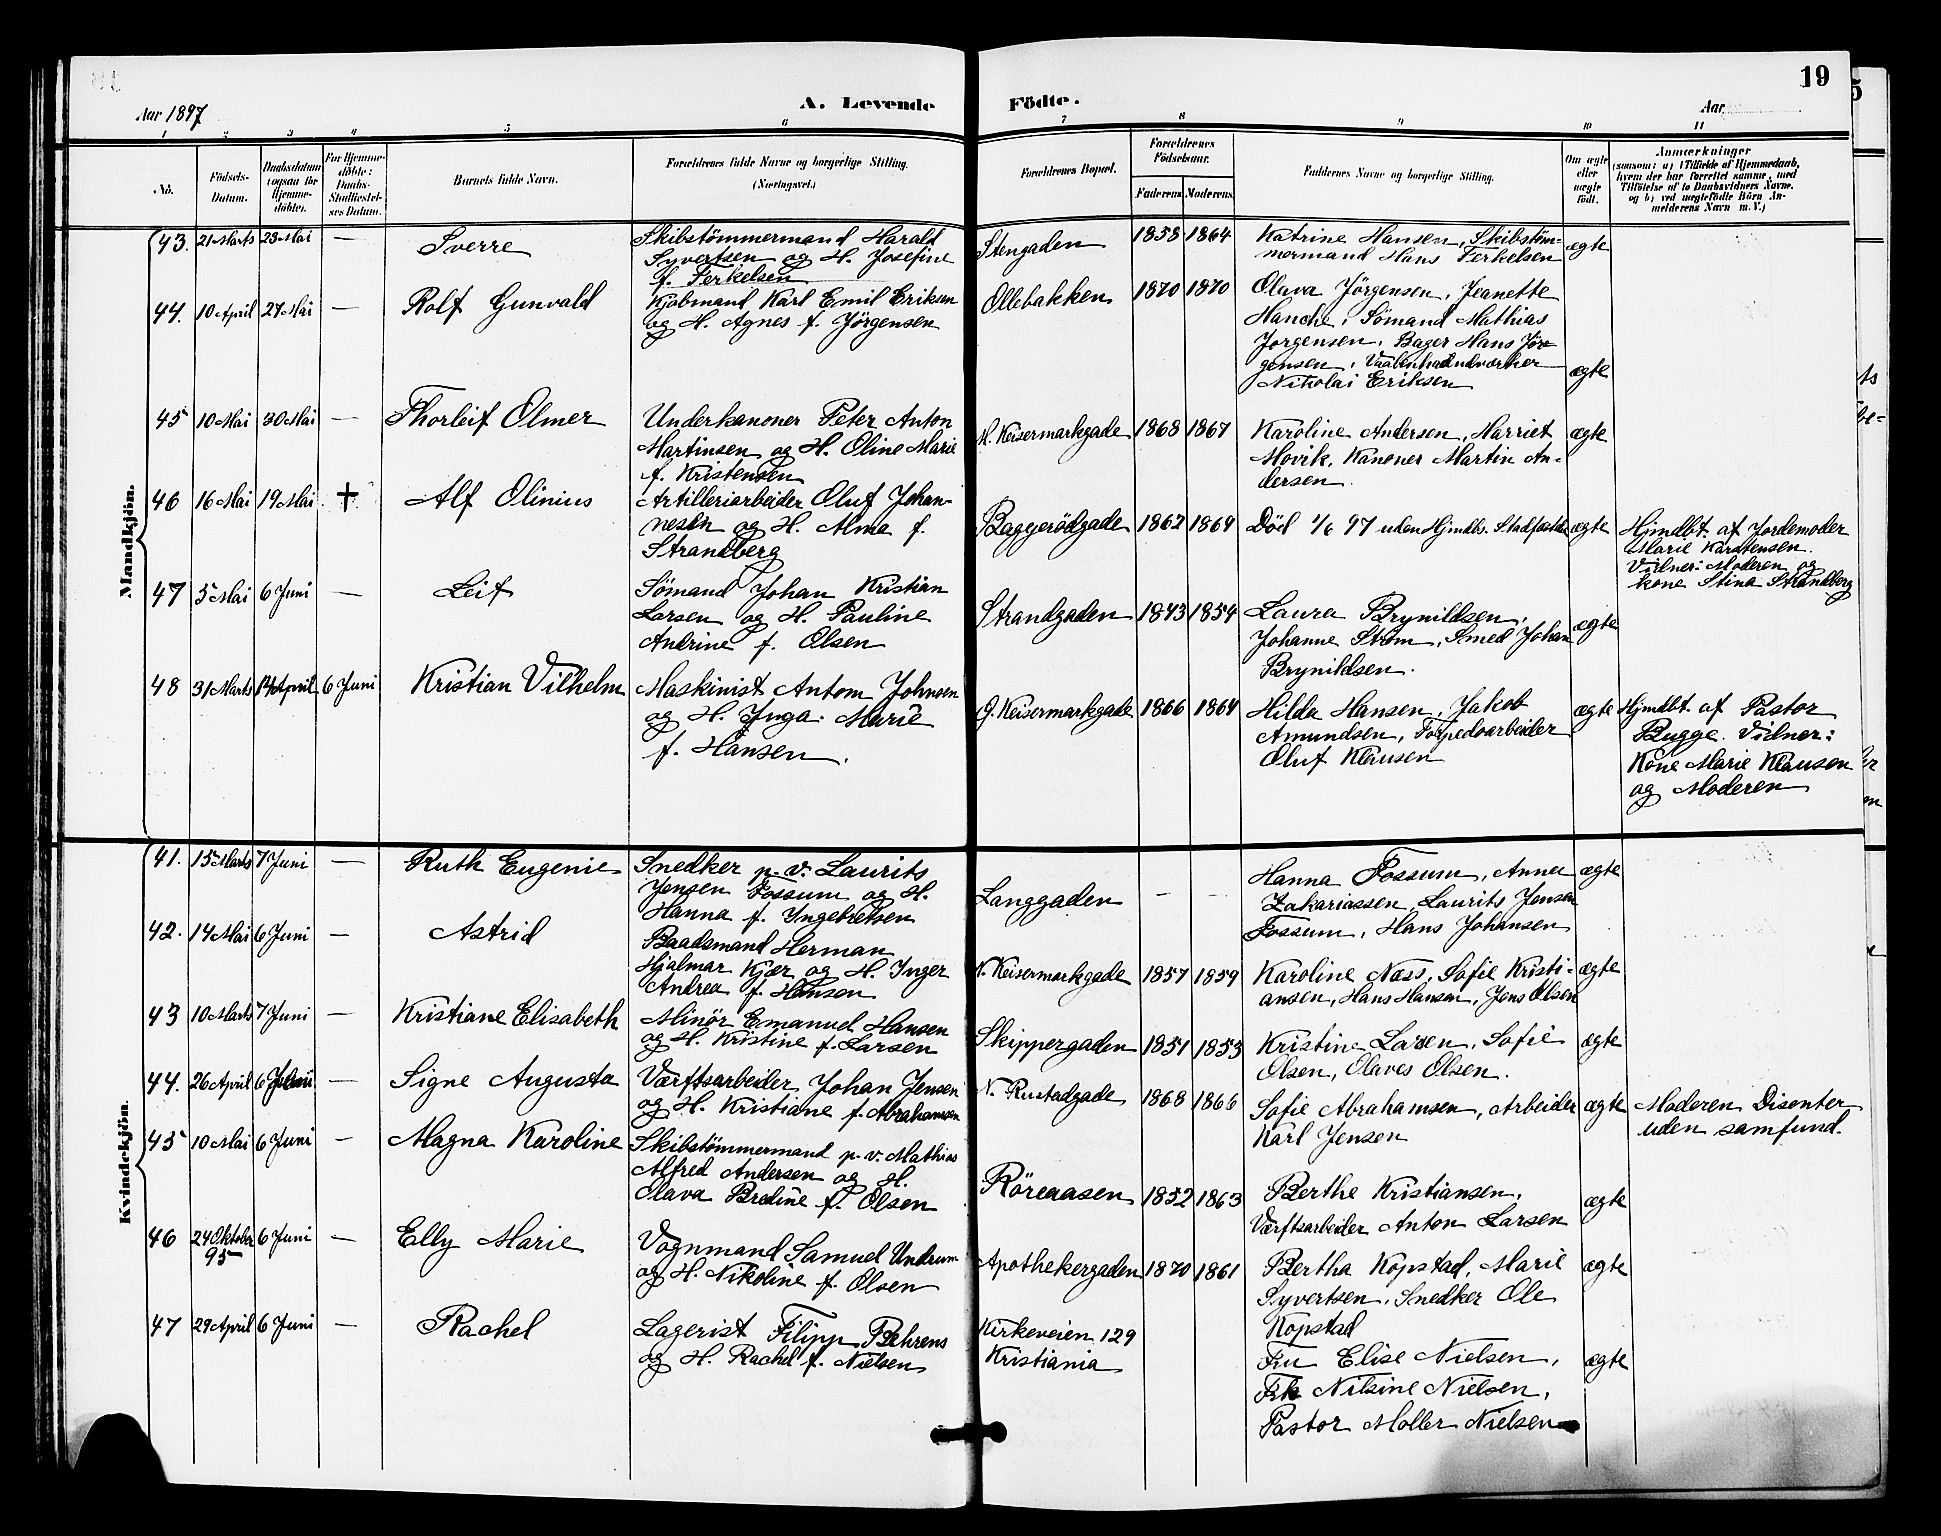 Aar 1897
A. Levende
Födte.
Aar
19
1 2 3 4 5 6 7 8 9 10 11
No.
Födsels-
Datum.
Daabsdatum
(ogsaa for
Hjemme-
döbte).
For Hjemme-
döbte:
Daabs-
Stadfæstel-
ses Datum.
Barnets fulde Navn.
Forældrenes fulde Navne og borgerlige Stilling.
(Næringsvei.)
Forældrenes Bopæl.
Forældrenes
Födselsaar.
Faderens
Moderens
Faddernes Navne og borgerlige Stilling.
Om ægte
eller
uægte
födt.
Anmærkninger
(saasom: a) i Tilfælde af Hjemmedaab,
hvem der har forrettet samme, med
Tilföielse af to Daabsvidners Navne,
og b) ved uægtefödte Börn An-
melderens Navn m. V.)
Mandkjön.
43. 21 Marts 23 Mai — Sverre
Skibstömmermand Harald
Syvertsen og H. Josefine
f. Terkelsen
Stengaden 1858 1864
Katrine Hansen, Skibstöm-
mermand Hans Terkelsen
ægte
44. 10 April 27 Mai — Rolf Gunvald
Kjøbmand Karl Emil Eriksen
og H. Agnes f. Jörgensen
Ollebakken 1870 1870
Olava Jörgensen, Jeanette
Hanche, Sömand Mathias
Jorgensen, Bager Hans Jör-
gensen, Vaabenhaandværker
Nikolai Eriksen
ægte
45 10 Mai 30 Mai — Thorleif Olmer
Underkanoner Peter Anton
Martinsen og H. Oline Marie
f. Kristensen
N. Keisermarkgade 1868 1867
Karoline Andersen, Harriet
Movik, Kanoner Martin An-
dersen.
ægte
46 16 Mai 19 Mai † Alf Olinius
Artilleriarbeider Oluf Johan-
nesen og H. Alma f.
Strandberg
Baggerödgade 1862 1869
Död 1/6 97 uden Hjmdbs. Stadfæstelse
ægte
Hjmdbt. af Jordemoder
Marie Karstensen.
Vidner: Moderen og
kone Stina Strandberg
47 5 Mai 6 Juni — Leif
Sömand Johan Kristian
Larsen og H. Pauline
Andrine f. Olsen
Strandgaden 1843 1854
Laura Brynildsen,
Johanne Ström, Smed Johan
Brynildsen.
ægte
48 31 Marts 14 April 6 Juni Kristian Vilhelm
Maskinist Antom Johnsen
og H. Inga Marie
f. Hansen.
G. Keisermarkgade 1866 1864
Hilda Hansen, Jakob
Amundsen, Torpedoarbeider
Oluf Klausen
ægte
Hjmdbt. af Pastor
Bugge. Vidner:
Kone Marie Klausen
og Moderen
Kvindekjön.
41. 15 Marts 7 Juni — Ruth Eugenie
Snedker p. v. Laurits
Jensen Fossum og H.
Hanna f. Ingebretsen
Langgaden — —
Hanna Fossum, Anna
Zakariassen, Laurits Jensen
Fossum, Hans Johansen
ægte
42. 14 Mai 6 Juni — Astrid
Baadsmand Herman
Hjalmar Kjær og H. Inger
Andrea f. Hansen
N. Keisermarkgade 1857 1859
Karoline Næss, Sofie Kristi-
ansen, Hans Hansen, Jens Olsen
ægte
43 10 Marts 7 Juni — Kristiane Elisabeth
Minör Emanuel Hansen
og H. Kristine f. Larsen
Skippergaden 1851 1853
Kristine Larsen, Sofie
Olsen, Olaves Olsen.
ægte
44. 26 April 6 Juni — Signe Augusta
Værftsarbeider Johan Jensen
og H. Kristiane f. Abrahamsen
N. Rustadgade 1868 1866
Sofie Abrahamsen, Arbeider
Karl Jensen
ægte
Moderen Disenter
uden samfund.
45 10 Mai 6 Juni — Magna Karoline
Skibstömmermand p. v. Mathias
Alfred Andersen og H.
Olava Bredine f. Olsen
Röreaasen 1852 1863
Berthe Kristiansen,
Værftsarbeider Anton Larsen
ægte
46 24 Oktober 6 Juni — Elly Marie
95
Vognmand Samuel Undrum
og H. Nikoline f. Olsen
Apothekergaden 1870 1861
Bertha Kopstad, Marie
Syvertsen, Snedker Ole
Kopstad
ægte
47 29 April 6 Juni — Rachel
Lagerist Filipp Behrens
og H. Rachel f. Nielsen
Kirkeveien 129
Kristiania
Fru Elise Nielsen,
Frk Nilsine Nielsen,
Pastor Moller Nielsen
ægte